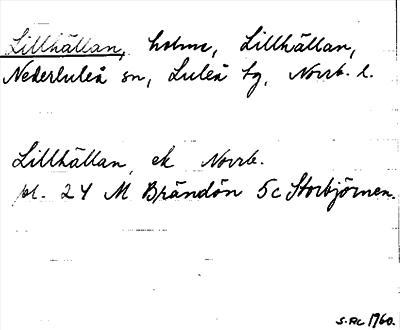 Lillhällan, holme, Lillhällan,
Nederluleå sn, Luleå tg, Norrb. l.
Lillhällan, ek Norrb.
bl. 24 M Brändön 5c Storbjörnen.
S.Ac 1960.